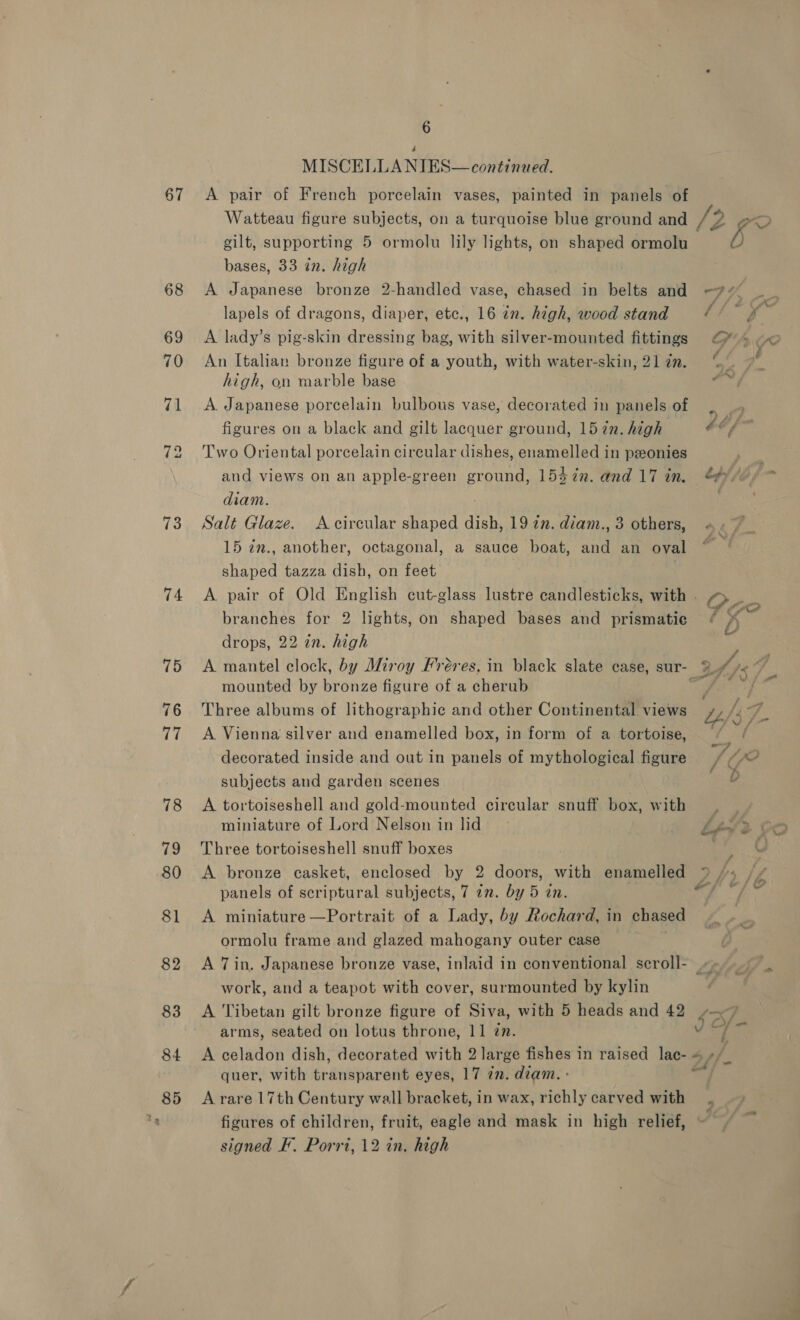 6
MISCELLANIES—continued.
67 A pair of French porcelain vases, painted in panels of
Watteau figure subjects, on a turquoise blue ground and
gilt, supporting 5 ormolu lily lights, on shaped ormolu
bases, 33 in. high
68 A Japanese bronze 2-handled vase, chased in belts and
lapels of dragons, diaper, etc., 16 in. high, wood stand
69 A lady's pig-skin dressing bag, with silver-mounted fittings
70 An Italian bronze figure of a youth, with water-skin, 21 in.
high, on marble base
71 A Japanese porcelain bulbous vase, decorated in panels of
figures on a black and gilt lacquer ground, 15 in. high
72 Two Oriental porcelain circular dishes, enamelled in pæonies
and views on an apple-green ground, 15½ in. and 17 in.
diam.
73 Salt Glaze. A circular shaped dish, 19 in. diam., 3 others,
15 in., another, octagonal, a sauce boat, and an oval
shaped tazza dish, on feet
74 A pair of Old English cut-glass lustre candlesticks, with
branches for 2 lights, on shaped bases and prismatic
drops, 22 in. high
75 A mantel clock, by Miroy Frères, in black slate case, sur-
mounted by bronze figure of a cherub
76 Three albums of lithographic and other Continental views
77 A Vienna silver and enamelled box, in form of a tortoise,
decorated inside and out in panels of mythological figure
subjects and garden scenes
78 A tortoiseshell and gold-mounted circular snuff box, with
miniature of Lord Nelson in lid
79 Three tortoiseshell snuff boxes
80 A bronze casket, enclosed by 2 doors, with enamelled
panels of scriptural subjects, 7 in. by 5 in.
81 A miniature—Portrait of a Lady, by Rochard, in chased
ormolu frame and glazed mahogany outer case
82 A 7 in. Japanese bronze vase, inlaid in conventional scroll-
work, and a teapot with cover, surmounted by kylin
83 A Tibetan gilt bronze figure of Siva, with 5 heads and 42
arms, seated on lotus throne, 11 in.
84 A celadon dish, decorated with 2 large fishes in raised lac-
quer, with transparent eyes, 17 in. diam.
85 A rare 17th Century wall bracket, in wax, richly carved with
figures of children, fruit, eagle and mask in high relief,
signed F. Porri, 12 in. high